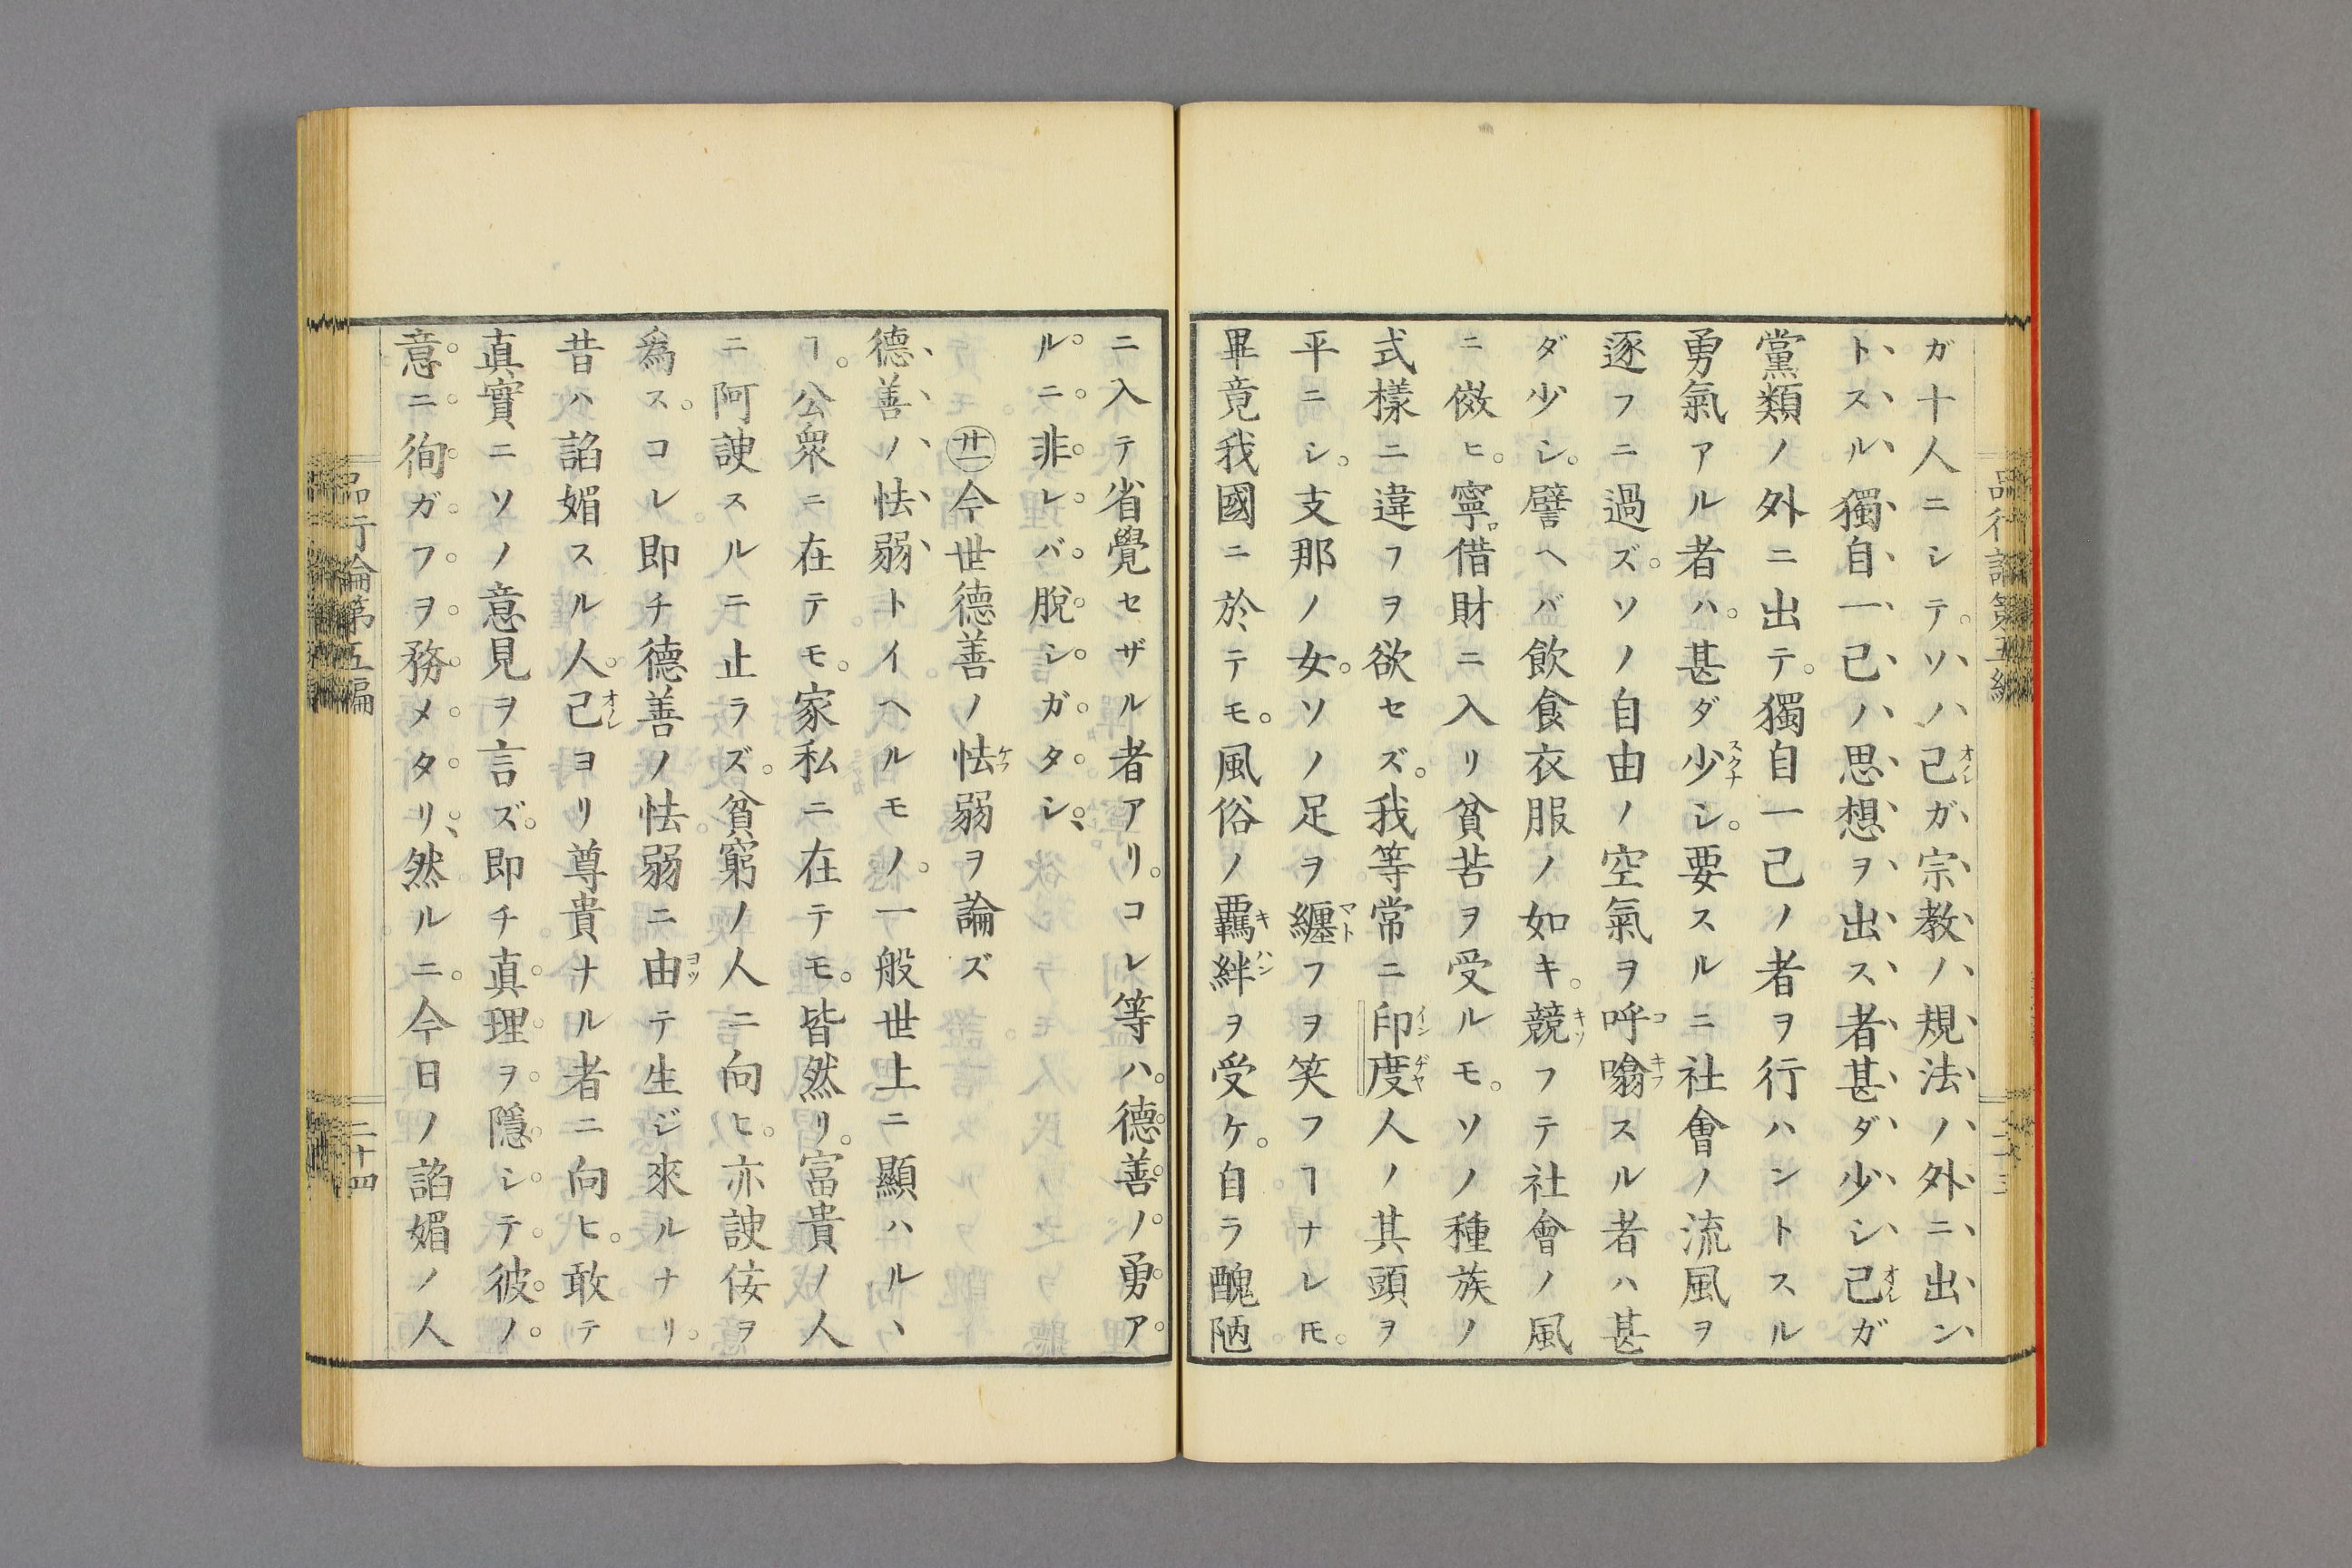 ガ十人ニシテ。ソノ己ガ宗教ノ規法ノ外ニ出ン
トスル獨自一己ノ思想ヲ出ス者甚ダ少シ己ガ
黨類ノ外ニ出テ。獨自一己ノ者ヲ行ハントスル
勇氣アル者ハ。甚ダ少シ。要スルニ社會ノ流風ヲ
逐フニ過ズ。ソノ自由ノ空氣ヲ呼噏スル者ハ甚
ダ少シ。譬ヘバ飲食衣服ノ如キ。競フテ社會ノ風
ニ傚ヒ。寧ロ借財ニ入リ貧苦ヲ受ルモ。ソノ種族ノ
式樣ニ違フヲ欲セズ。我等常ニ印度人ノ其頭ヲ
平ニシ。支那ノ女。ソノ足ヲ纏フヲ笑フヿナレ𪜈。
畢竟我國ニ於テモ。風俗ノ羈絆ヲ受ケ。自ラ醜陋
ニ入テ省覺セザル者アリ。コレ等ハ。德善ノ勇ア
ルニ非レバ脫シガタシ、
㊂今世德善ノ怯弱ヲ論ズ
德善ノ怯弱トイヘルモノ。一般世上ニ顯ハルヽ
ヿ。公衆ニ在テモ。家私ニ在テモ。皆然リ。富貴ノ人
ニ阿諛スルニ止ラズ。貧窮ノ人ニ向ヒ。亦諛侫ヲ
爲ス。コレ即チ德善ノ怯弱ニ由テ生ジ來ルナリ。
昔ハ諂媚スル人。己ヨリ尊貴ナル者ニ向ヒ。敢テ
真實ニソノ意見ヲ言ズ。即チ真理ヲ隱シテ彼ノ
意ニ徇ガフヲ務メタリ、然ルニ。今日ノ諂媚ノ人
品行論第五編
二十四